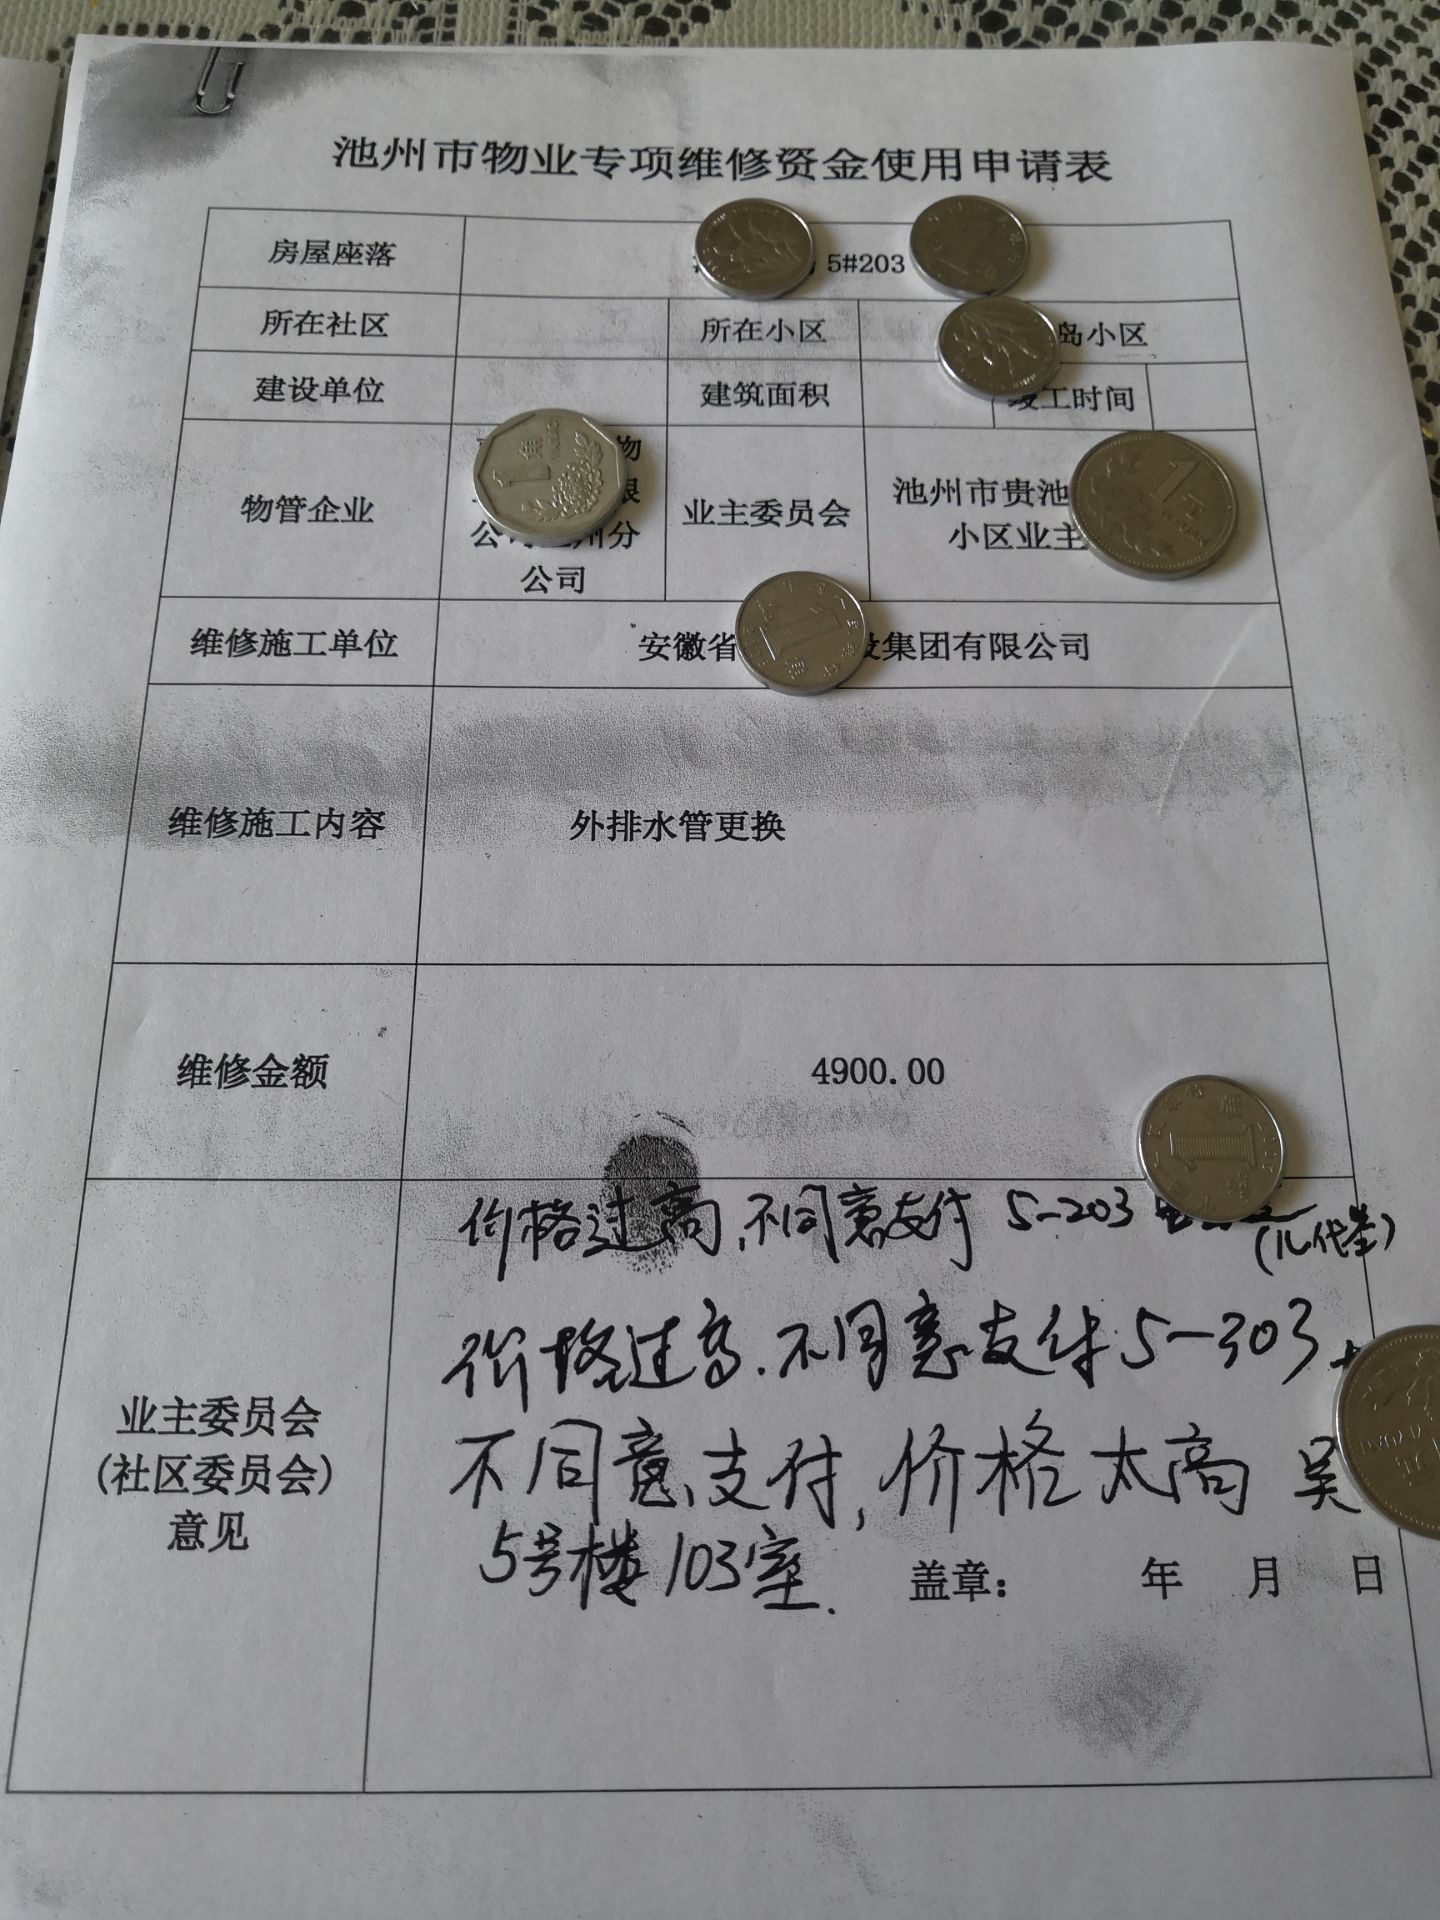 池州市物业专项维修资金使用申请表
房屋座落 5#203
所在社区 所在小区 岛小区
建设单位 建筑面积 竣工时间
物管企业 物
限
公司池州分
公司
业主委员会 池州市贵池
小区业主
维修施工单位 安徽省 设集团有限公司
维修施工内容 外排水管更换
维修金额 4900.00
业主委员会
(社区委员会)
意见
价格过高,不同意支付 5-203
价格过高.不同意支付5-303
不同意支付,价格太高 吴
5号楼103室.
盖章: 年 月 日
1角
1元